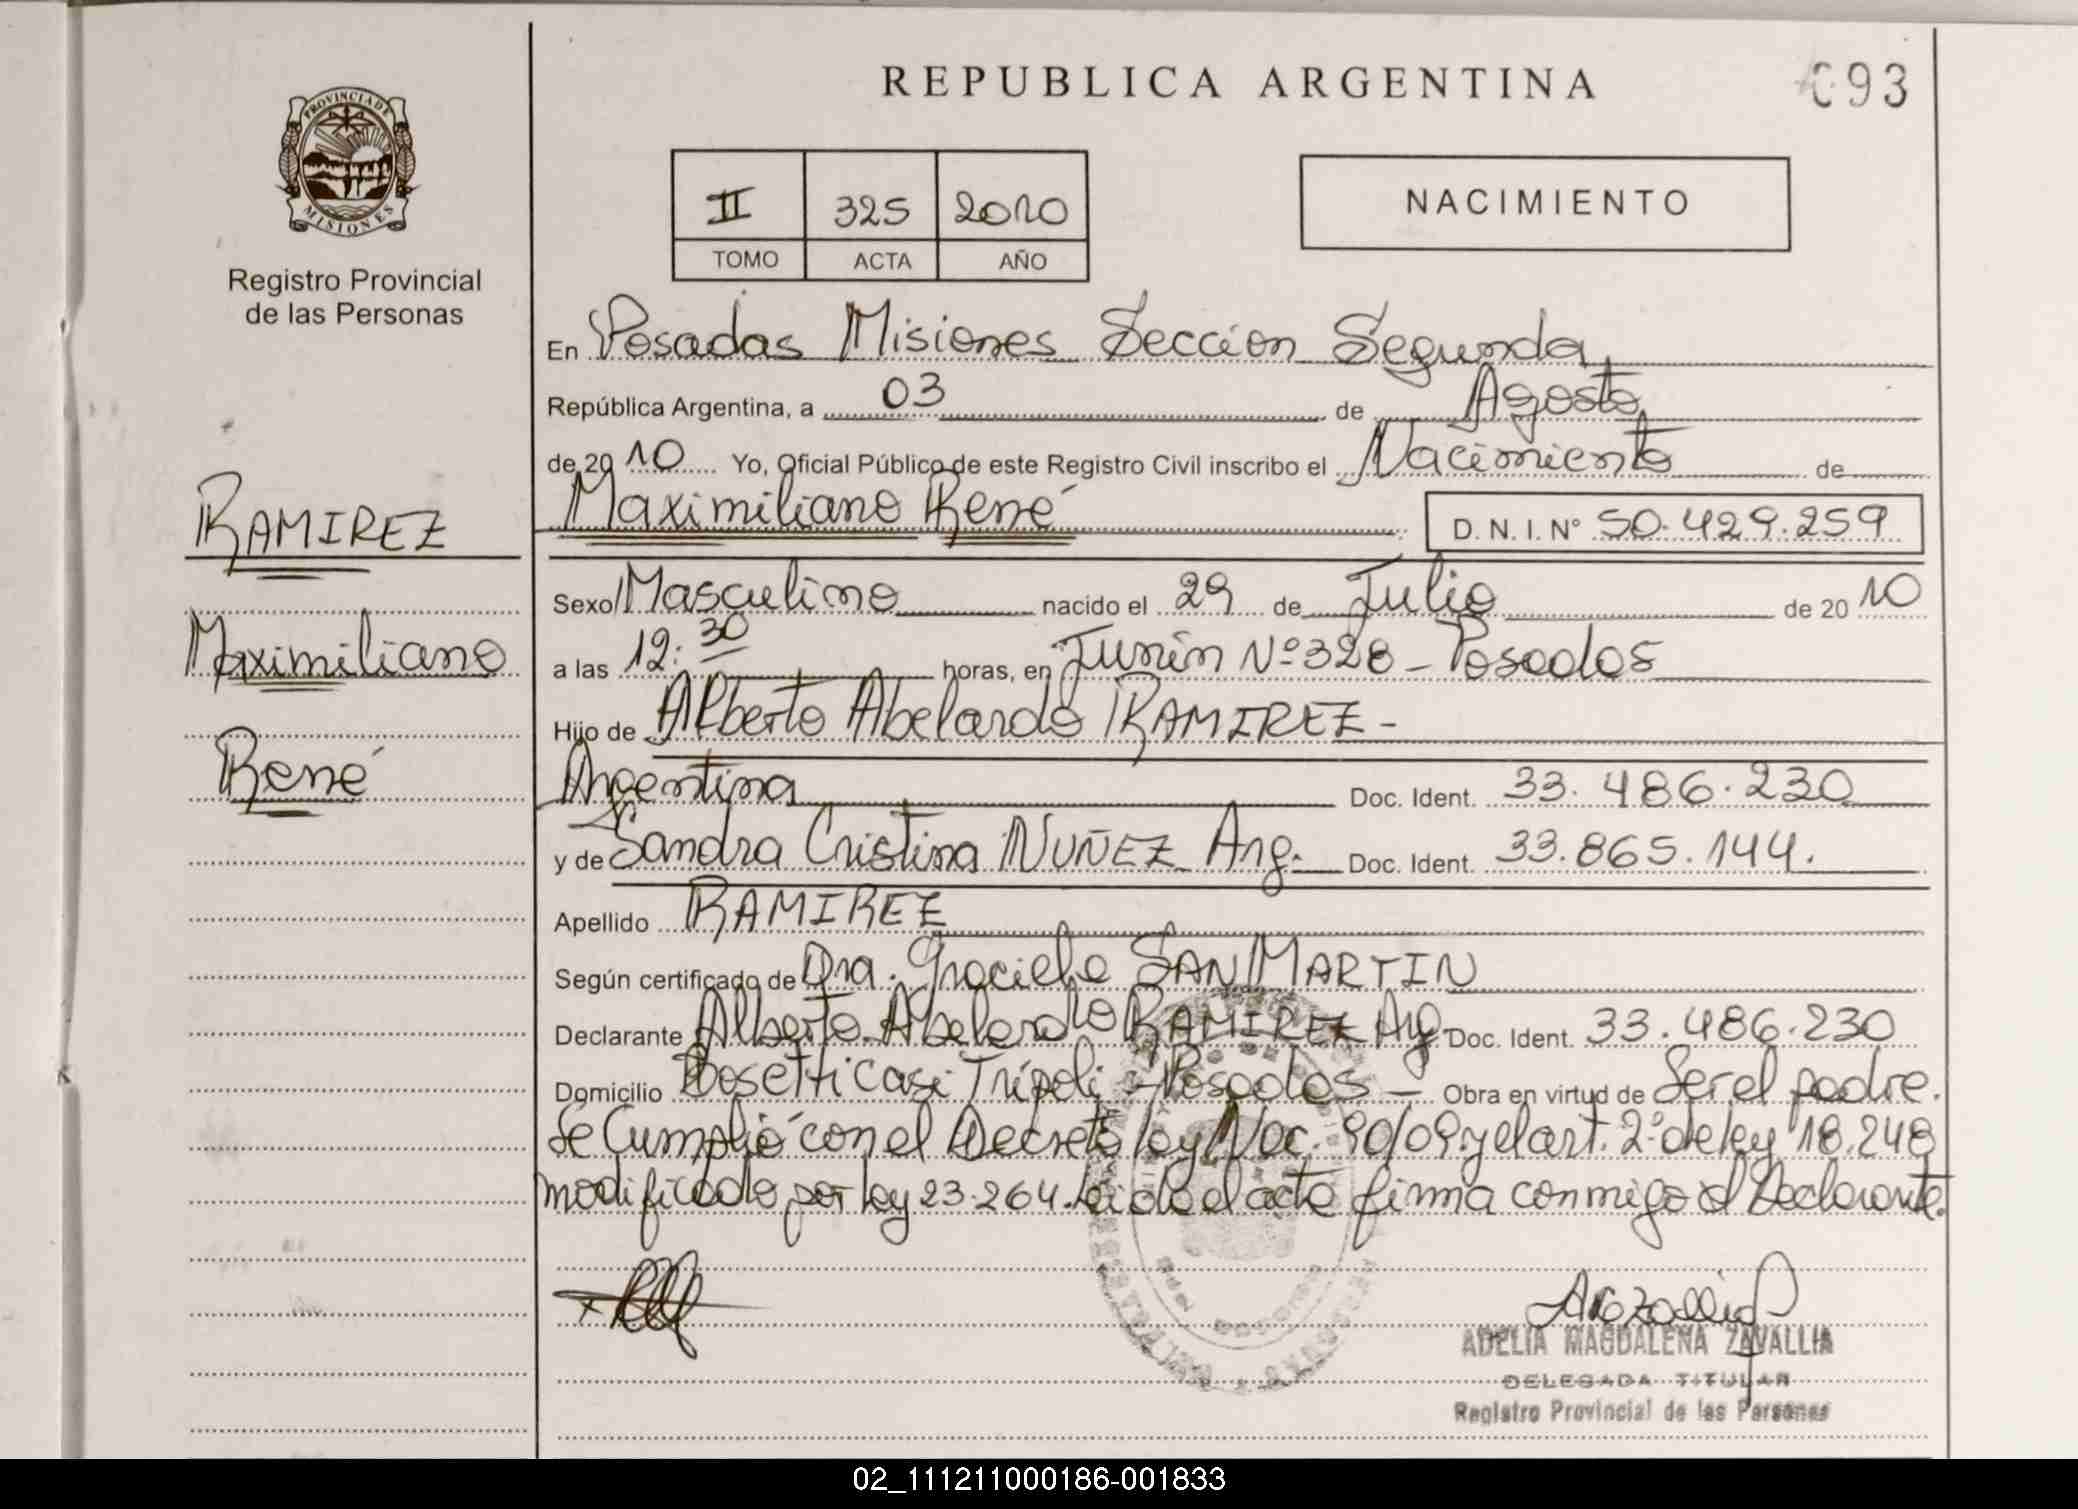 PROVINCIA DE
MISIONES
Registro Provincial
de las Personas
RAMIREZ
Maximiliano
René
REPUBLICA ARGENTINA
093
II 325 2010
TOMO ACTA AÑO
NACIMIENTO
En Posadas Misiones Sección Segunda,
República Argentina, a 03 de Agosto
de 2010 Yo, Oficial Público de este Registro Civil inscribo el Nacimiento de
Maximiliano René D.N.I. N° 50.429.259
Sexo Masculino nacido el 29 de Julio de 2010
a las 12:30 horas, en Junín Nº 328 - Posadas
Hijo de Alberto Abelardo RAMIREZ -
Argentina Doc. Ident. 33.486.230
y de Sandra Cristina NUÑEZ Arg. Doc. Ident. 33.865.144.
Apellido RAMIREZ
Según certificado de Dra. Graciela SAN MARTIN
Declarante Alberto Abelardo RAMIREZ Arg. Doc. Ident. 33.486.230
Domicilio Bosetti casi Trípoli - Posadas - Obra en virtud de Ser el padre.
Se Cumplió con el Decreto ley Nac. 90/09 y el art. 2º de ley 18.248
modificado por ley 23.264. Leido el acta firma conmigo el Declarante.
ADELIA MAGDALENA ZAVALLIA
DELEGADA TITULAR
Registro Provincial de las Personas
02_111211000186-001833